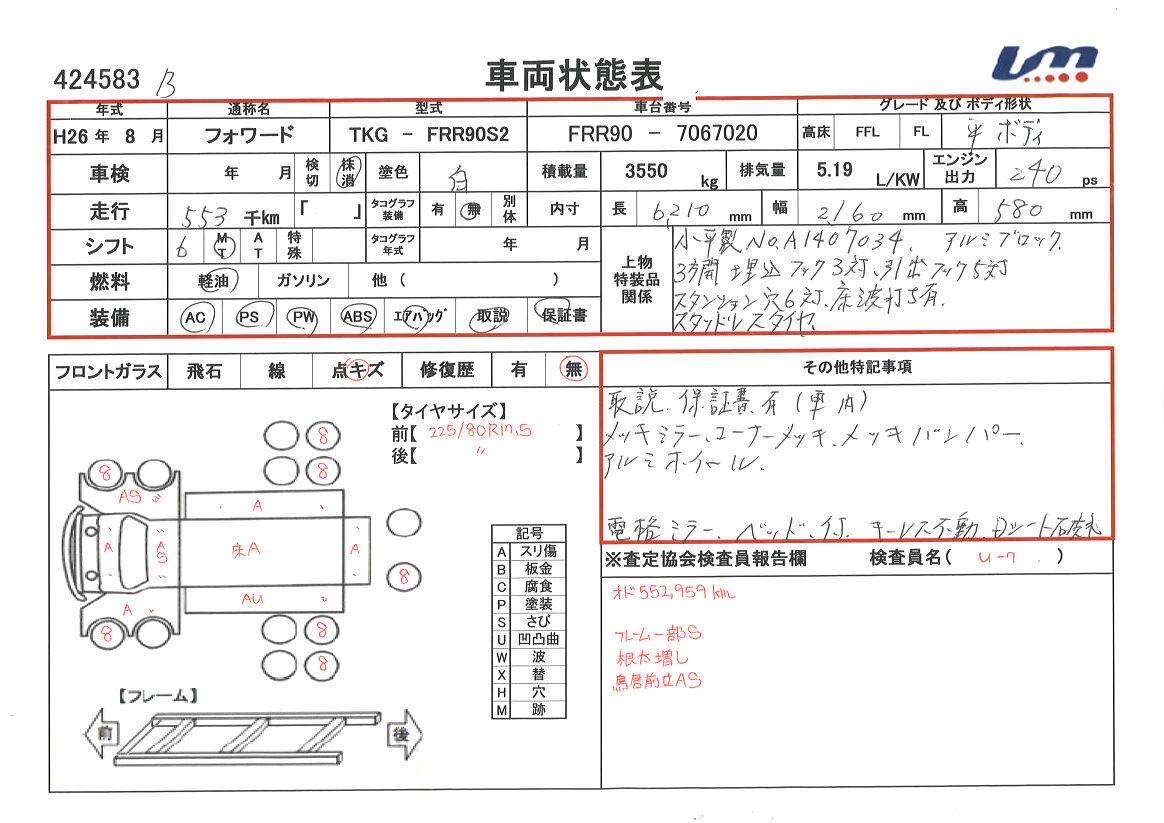 424583 B
車両状態表
UM
年式 通称名 型式 車台番号 グレード 及び ボディ形状
H26 年 8 月 フォワード TKG - FRR90S2 FRR90 - 7067020 高床 FFL FL 平ボディ
車検 年 月 検切 抹消 塗色 白 積載量 3550 kg 排気量 5.19 L/KW エンジン出力 240 ps
走行 553 千km 「 」 タコグラフ装備 有 無 別体 内寸 長 6,210 mm 幅 2,160 mm 高 580 mm
シフト 6 MT AT 特殊 タコグラフ年式 年 月 上物特装品関係
小平製No.A1407034、アルミブロック、
3方開 埋込フック3対、引出フック5対
スタンション穴6対、床波打ち有、
スタッドレスタイヤ、
燃料 軽油 ガソリン 他 ( )
装備 AC PS PW ABS エアバッグ 取説 保証書
フロントガラス 飛石 線 点キズ 修復歴 有 無
その他特記事項
取説、保証書、有(車内)
メッキミラー、コーナーメッキ、メッキバンパー、
アルミホイール、
電格ミラー、ベッド付、キーレス不動、Dシート破れ
【タイヤサイズ】
前【 225/80R17.5 】
後【 〃 】
8 8
8 8
AS 〃
A
A AS 床A A
8
A AU
8 8
8
※査定協会検査員報告欄 検査員名( U-7 )
オド552,959km
フレーム一部S
根太増し
鳥居前立AS
記号
A スリ傷
B 板金
C 腐食
P 塗装
S さび
U 凹凸曲
W 波
X 替
H 穴
M 跡
【フレーム】
前 後